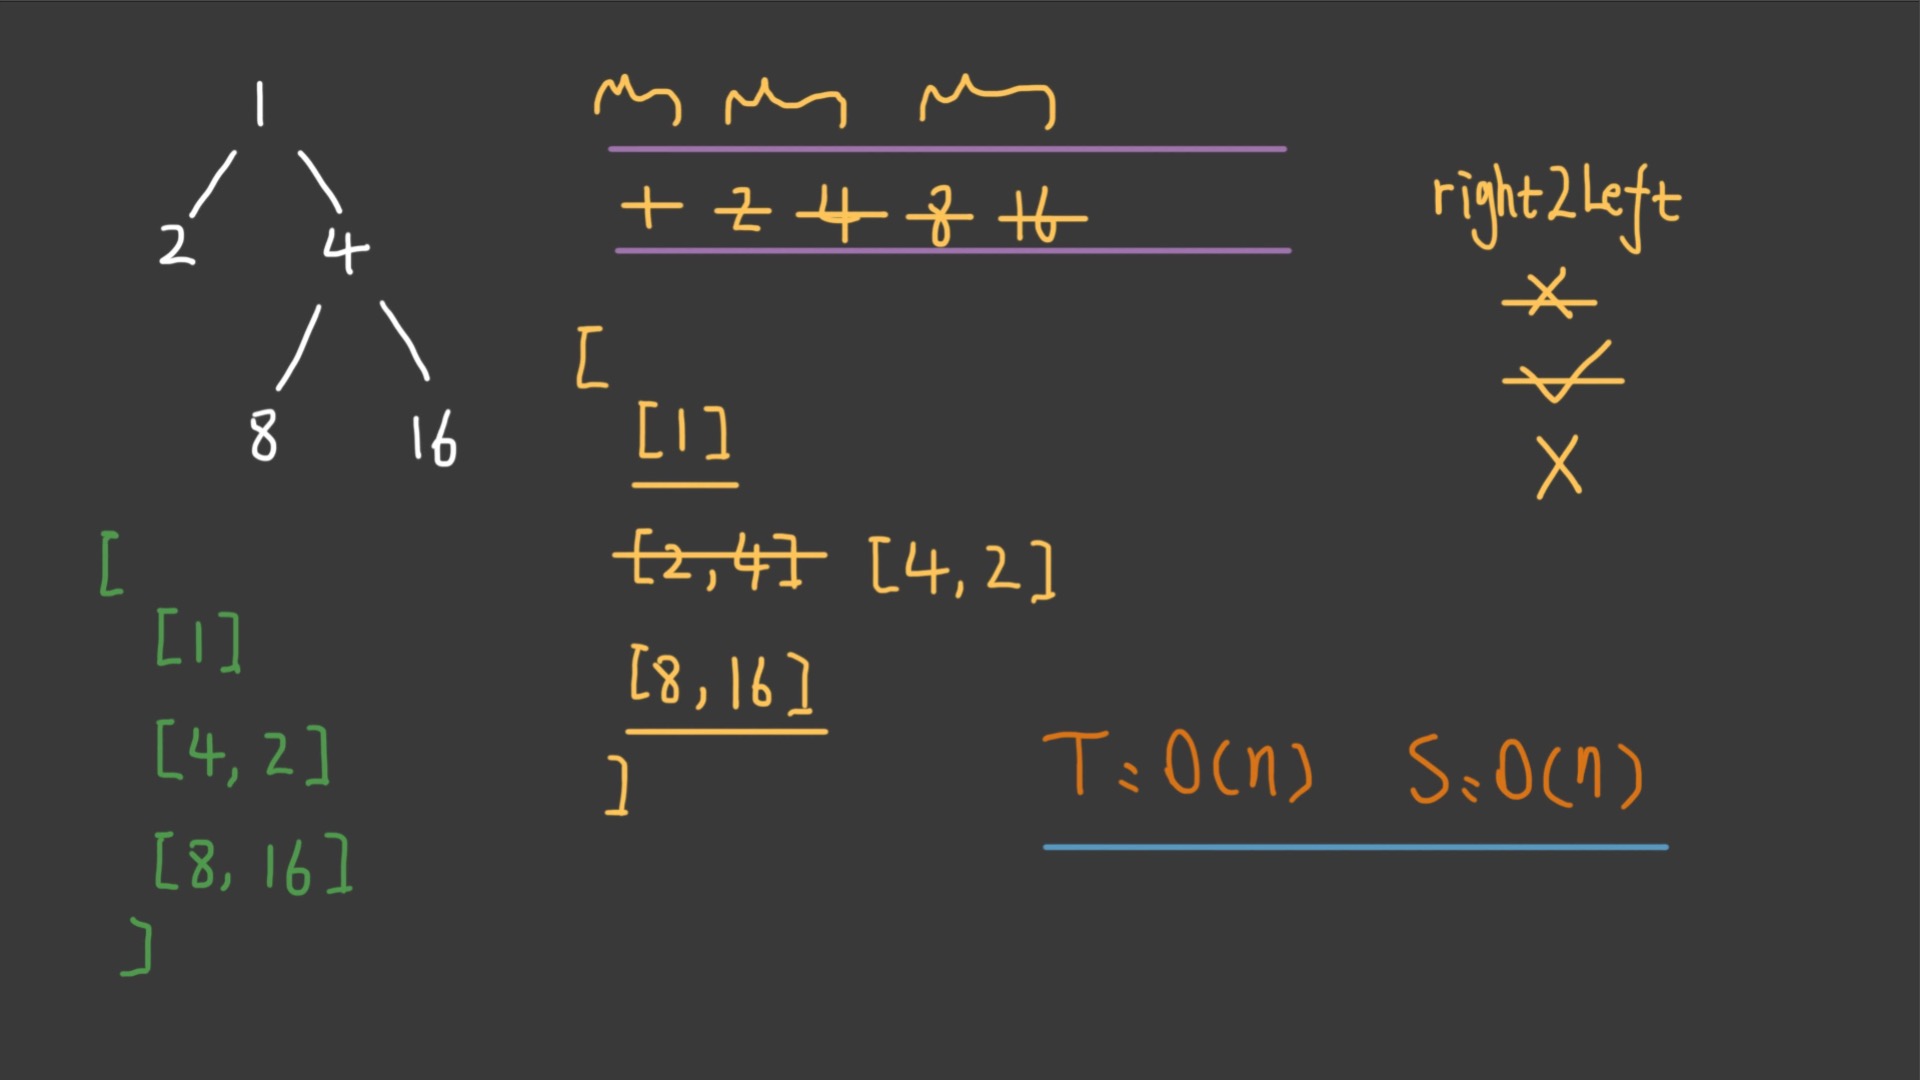 1
2 4
8 16
[
[1]
[4, 2]
[8, 16]
]
1 2 4 8 16
[
[1]
[2, 4] [4, 2]
[8, 16]
]
right2Left
X
✓
X
T = O(n) S = O(n)